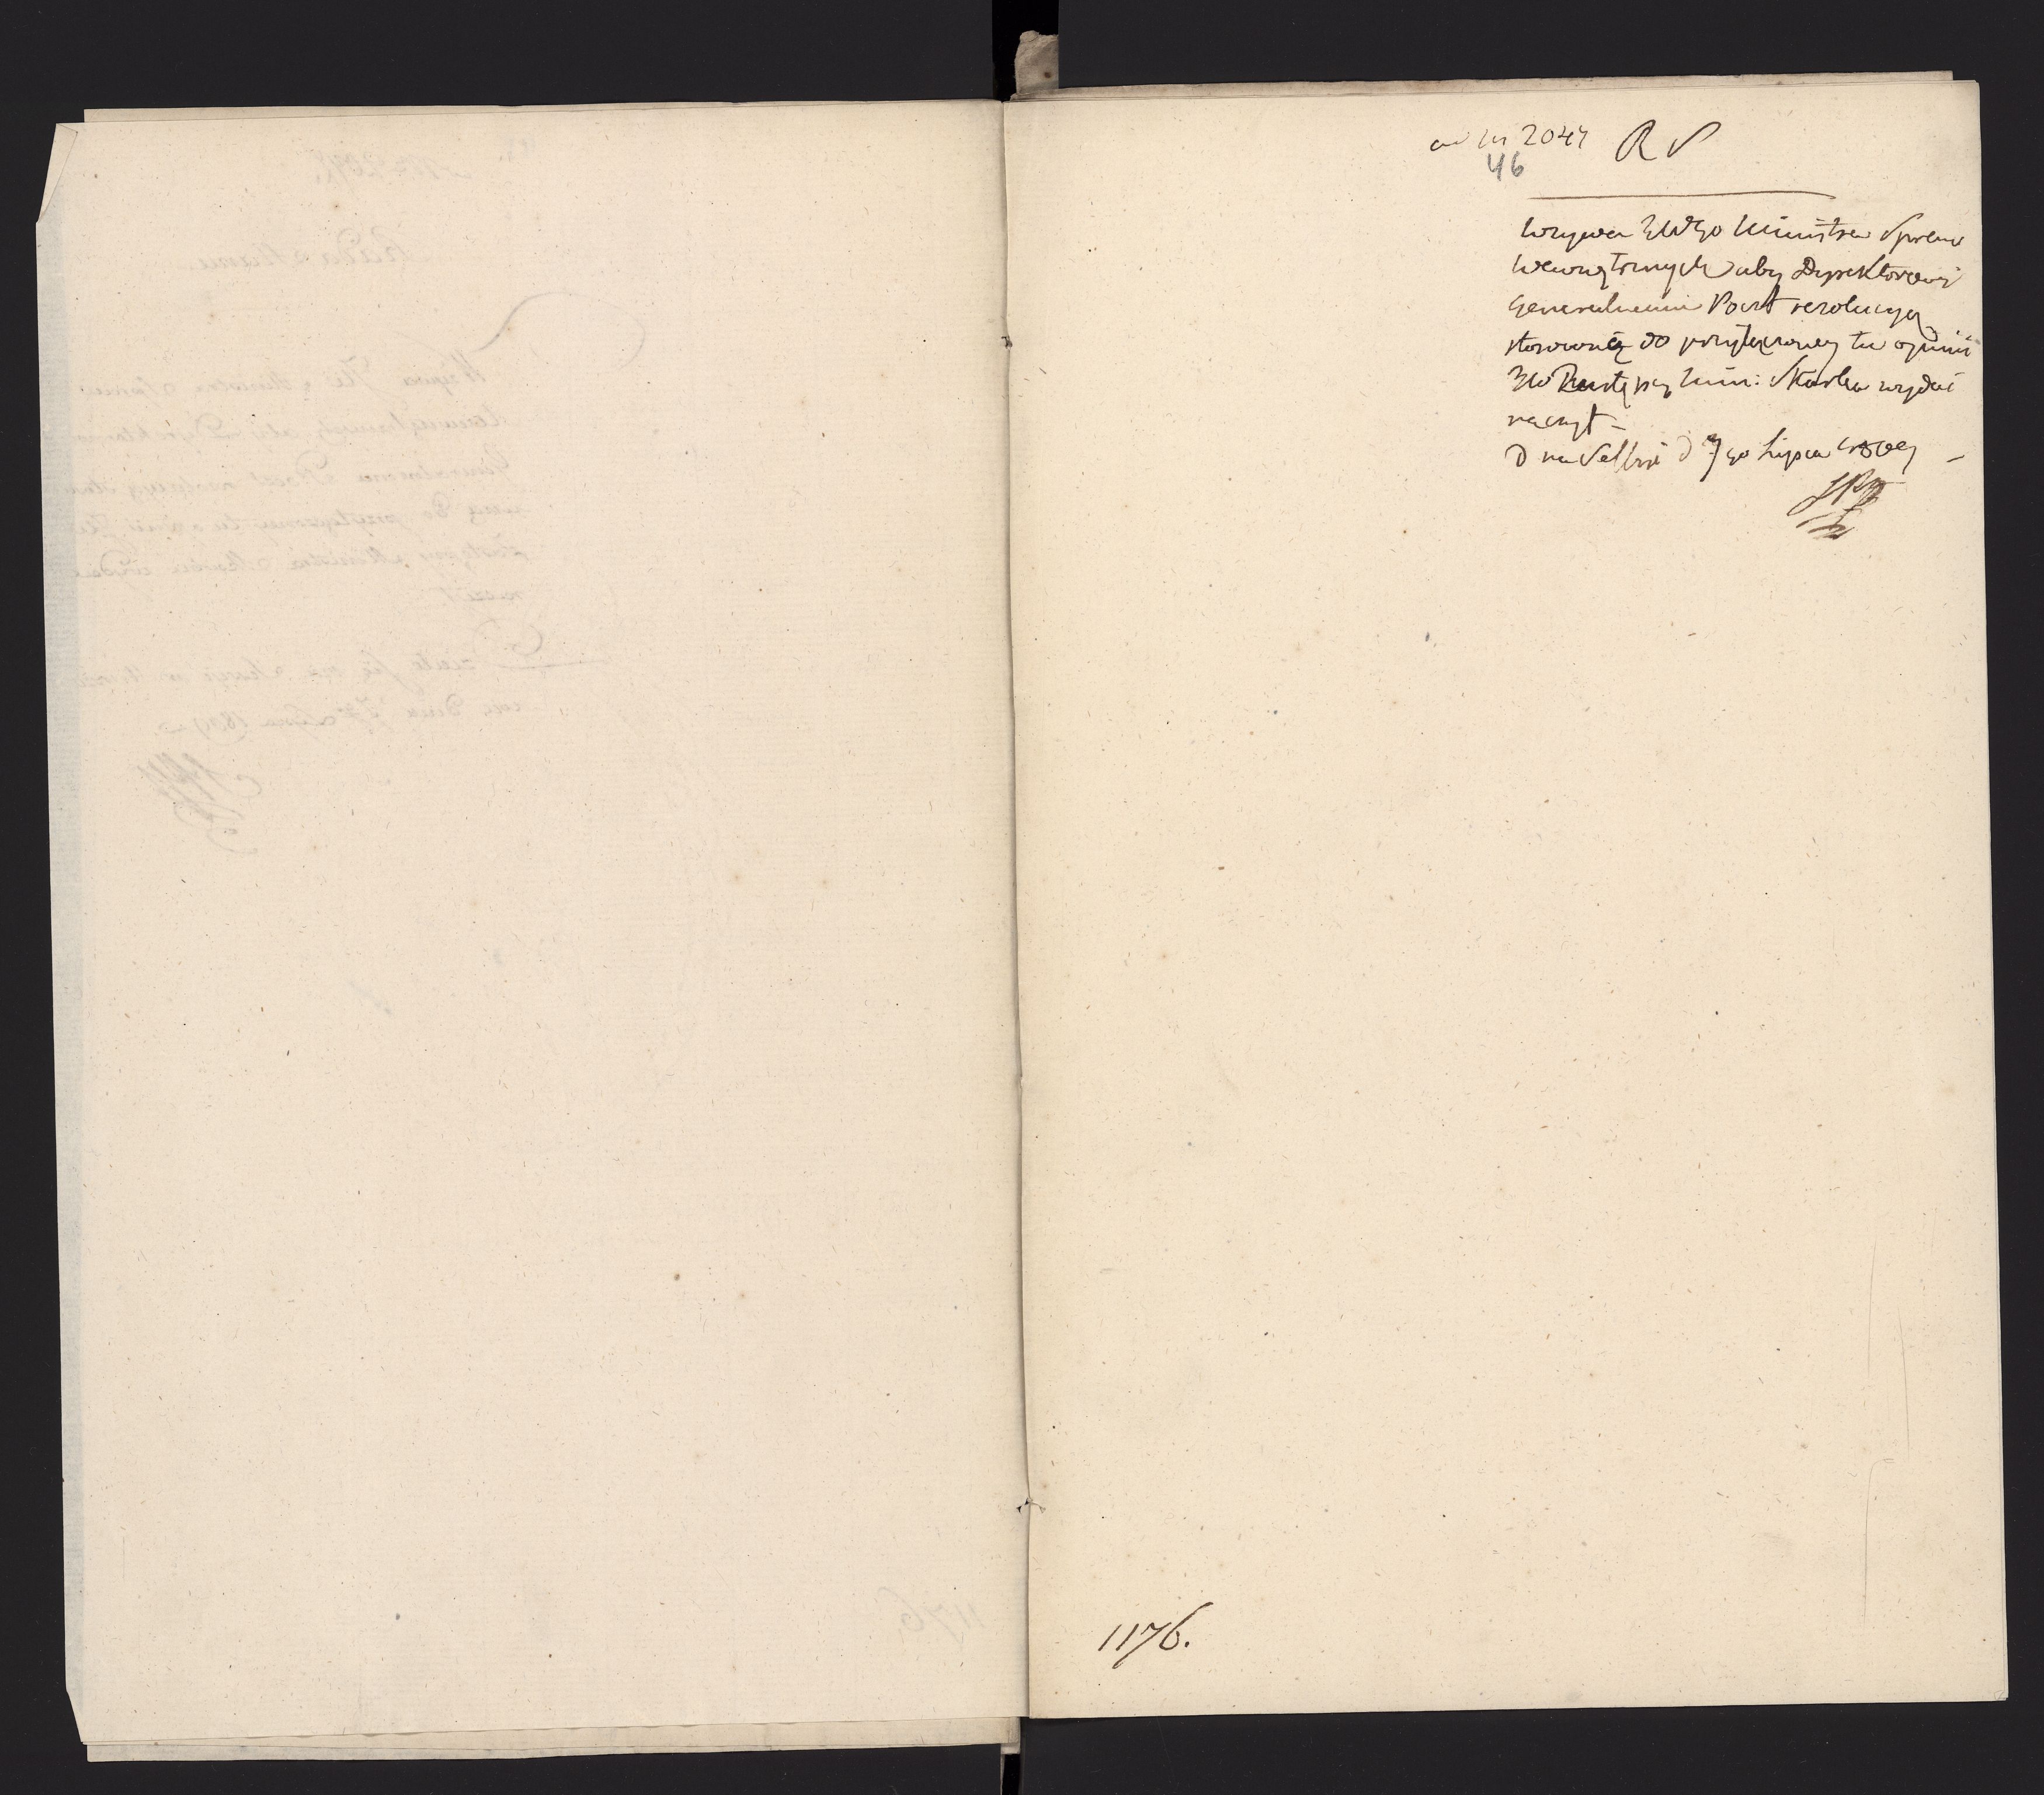 ad N 2047 RS
46
Wzywa JWgo Ministra Spraw
Wewnętrznych aby Dyrektorowi
Generalnemu Poczt rezolucyą
stosowną do przyłączoney tu opinii
JW Zastępcy Min: Skarbu wydać
raczył –
D na Sessyi d 7go Lipca 1809 –
1176.